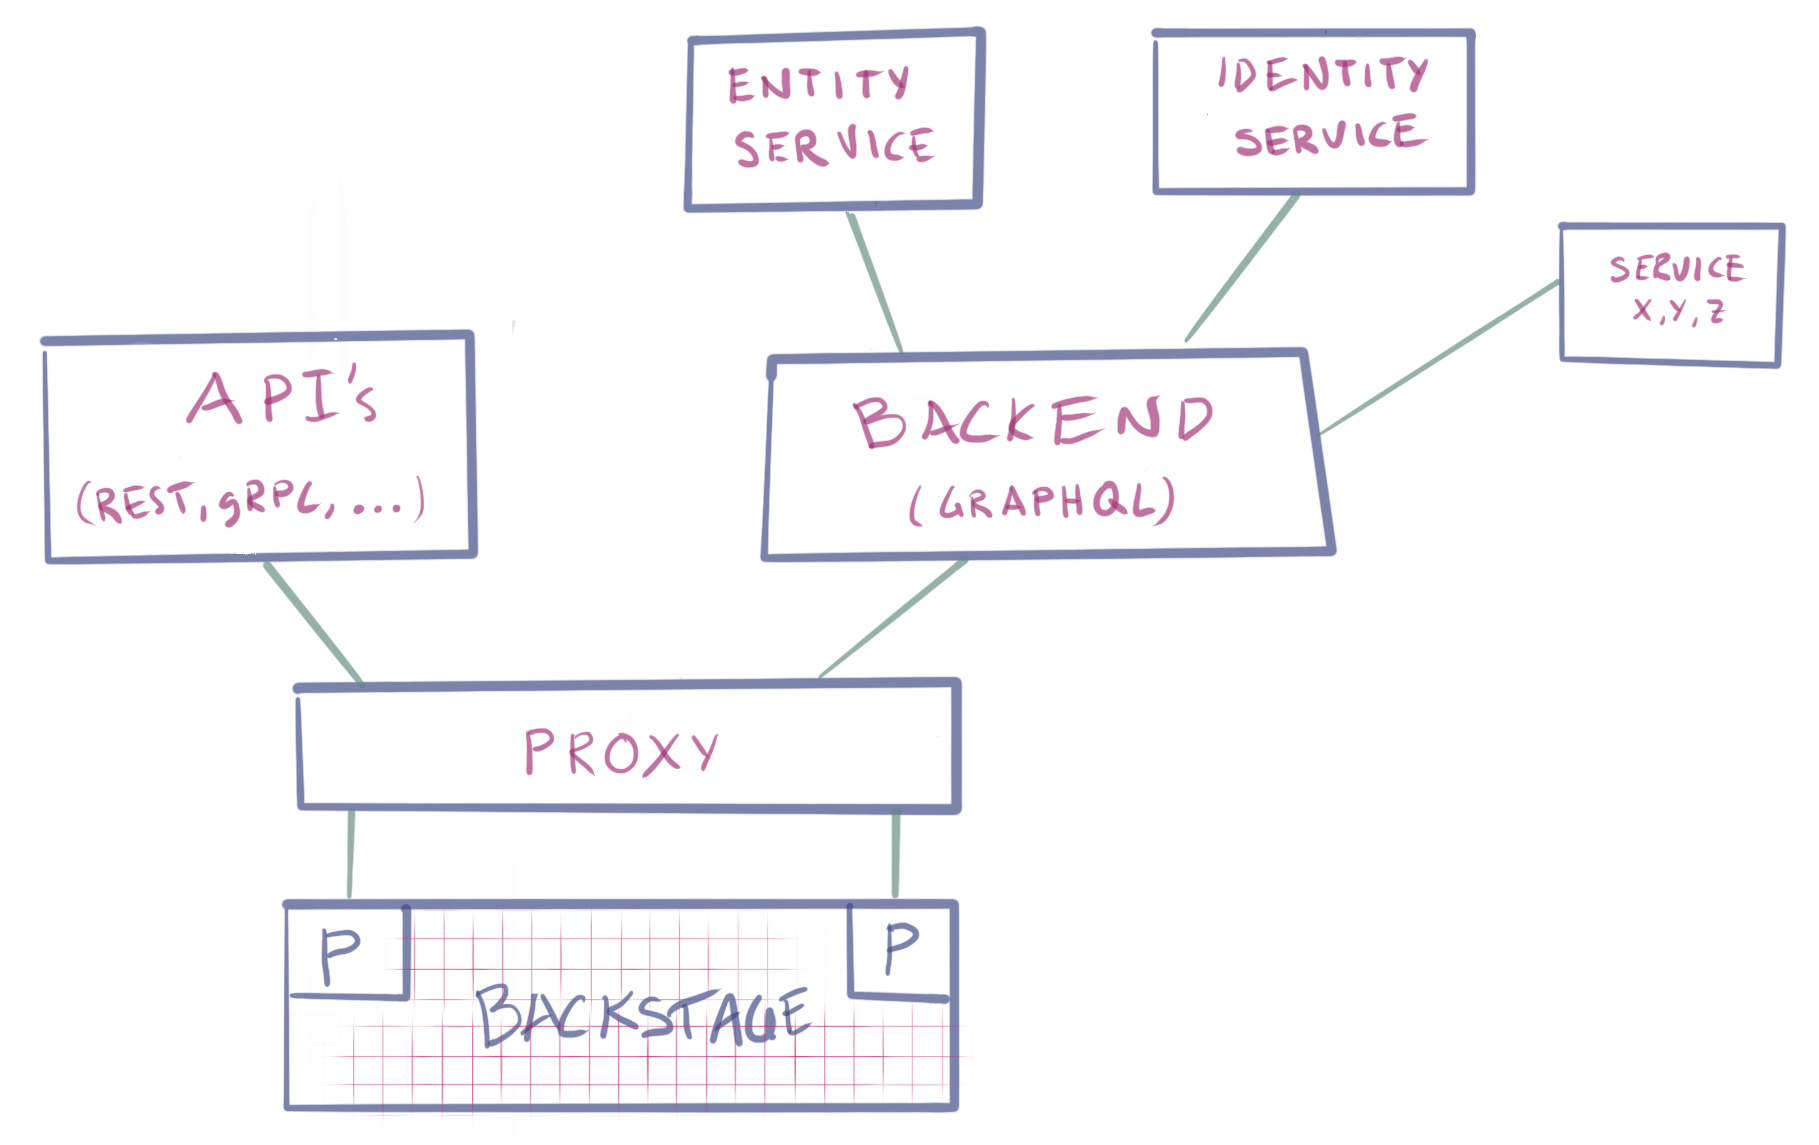 ENTITY
SERVICE
IDENTITY
SERVICE
SERVICE
X,Y,Z
API's
(REST, gRPC, ...)
BACKEND
(GRAPHQL)
PROXY
P
P
BACKSTAGE